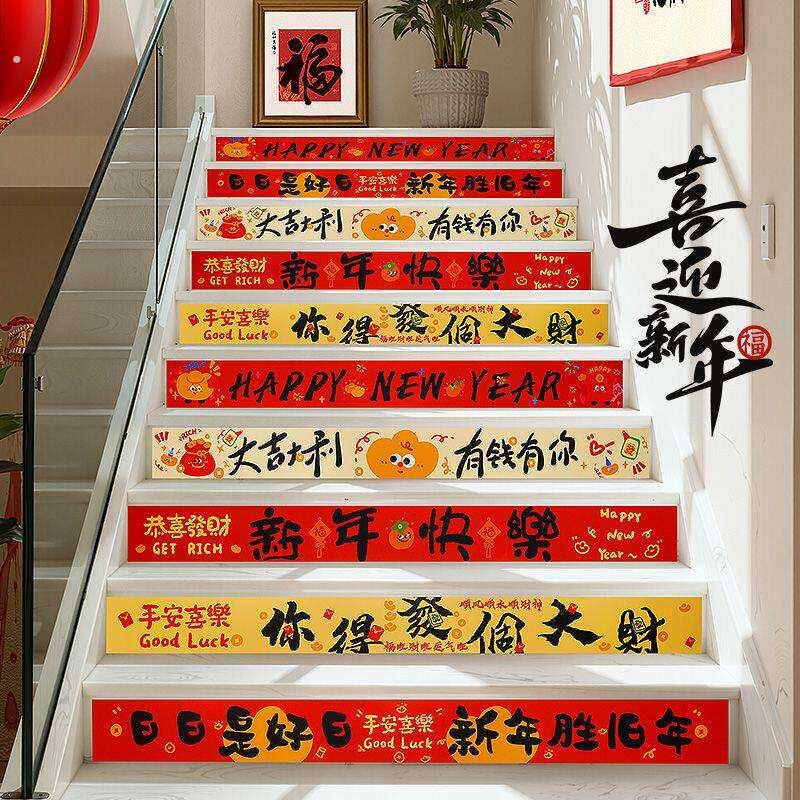 福
HAPPY NEW YEAR
日日是好日 平安喜樂 Good Luck 新年胜旧年
RICH 大吉大利 有钱有你
恭喜發財 GET RICH 新年快樂 Happy New Year~
平安喜樂 Good Luck 你得發個大財 順风順水順财神 福旺财旺运气旺
HAPPY NEW YEAR
RICH 大吉大利 有钱有你
恭喜發財 GET RICH 新年快樂 Happy New Year~
平安喜樂 Good Luck 你得發個大財 順风順水順财神 福旺财旺运气旺
日日是好日 平安喜樂 Good Luck 新年胜旧年
喜迎新年 福